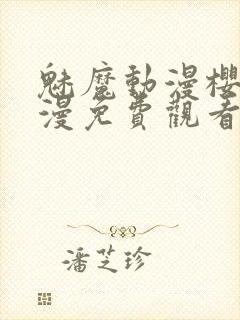 魅魔動漫櫻
漫免費觀看
潘芝珍